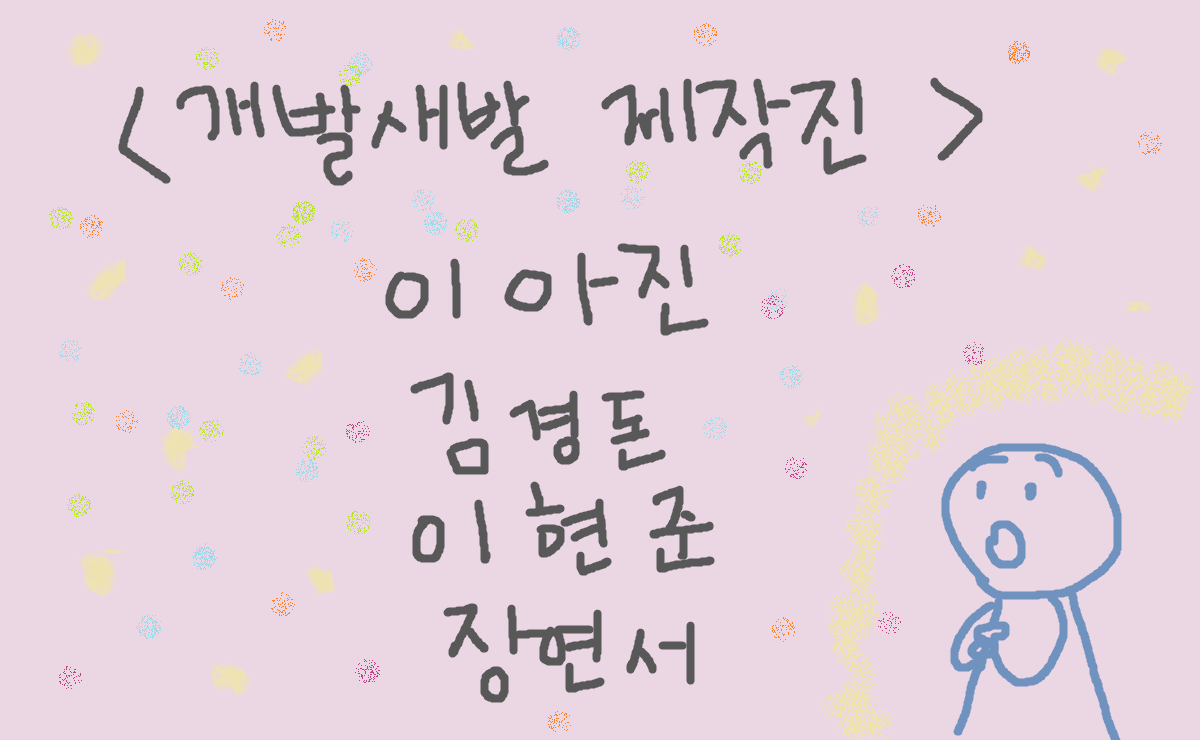 <개발새발 제작진>
이아진
김경돈
이현준
장연서